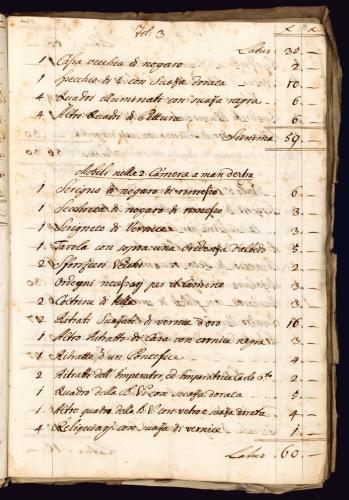 Fol. 3
Latus 30 —
1 Cassa vecchia di nogaro 2 —
1 Specchio di ¾ con Suasa dorata 10 —
4 Quadri illuminati con suasa negra 6 —
4 Altri Quadri di Pittura 6 —
Summa 59 —
Mobili nella 2 Camera a man destra
1 Scrigno di nogaro di rimesso 6 —
1 Secchreta di nogaro di rimesso 3 —
1 Scrigneto di Vernice 3 —
1 Tavola con sopra una Credenza d'albedo 5 —
2 Sforzieri Vechi 2 —
Ordegni necessarj per il Camino 3 —
2 Coltrine di tela 3 —
2 Ritrati Suasati di vernice d'oro 16 —
1 Altro Ritratto di Cera con cornice negra 3 —
1 Ritratto d'un Pontefice 4 —
2 Ritrati dell'Imperator, ed Imperatrice Carlo 6to 2 —
1 Quadro della B.V. con suasa dorata 5 —
1 Altro quadro della B.V. con vetro e suasa dorata 4 —
4 Reliquiarj con suasa di vernice 1 —
Latus 60 —